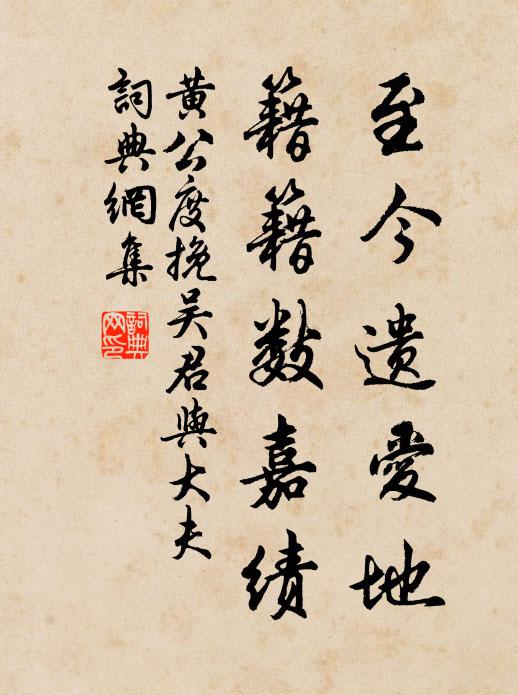 至今遗爱地
籍籍数嘉绩
黄公度挽吴君与大夫
词典網集
詞典